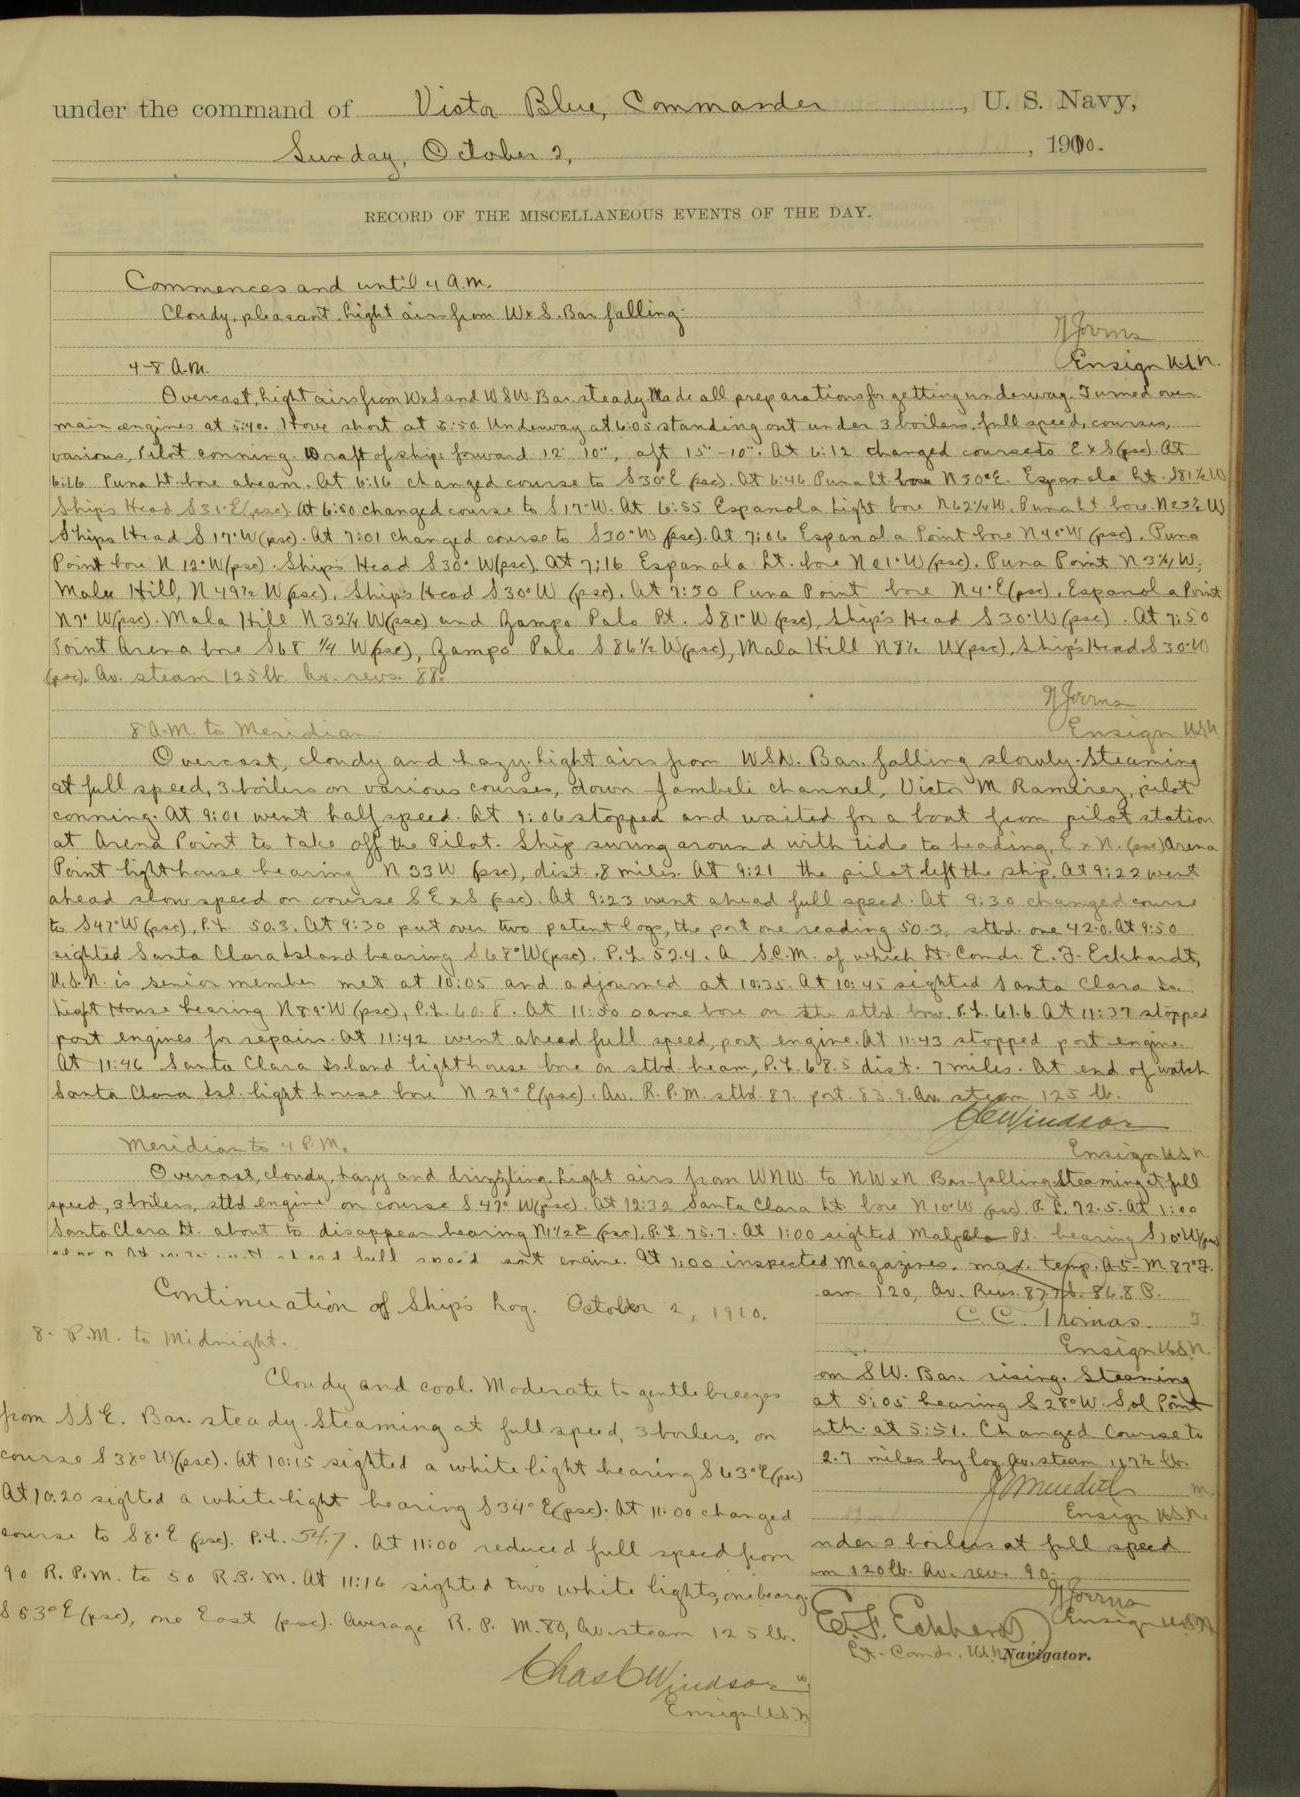 under the command of Victor Blue, Commander, U. S. Navy,
Sunday, October 2, 1910.
RECORD OF THE MISCELLANEOUS EVENTS OF THE DAY.
Commences and until 4 a.m.
Cloudy, pleasant, light airs from WxS. Bar. falling.
Ensign U.S.N.
4-8 A.M.
Overcast, light airs from WxS and WSW. Bar. steady. Made all preparations for getting underway. Turned over
main engines at 5:40. Hove short at 5:50. Underway at 6:05 standing out under 3 boilers, full speed, courses,
various, Pilot conning. Draft of ship: forward 12' 10", aft 15'-10". At 6:12 changed course to ExS (psc). At
6:16 Puna Lt. bore abeam. At 6:16 changed course to S30°E (psc). At 6:46 Puna Lt. bore N30°E. Espanola Lt. S81½W
Ships Head S31°E (psc). At 6:50 changed course to S17°W. At 6:55 Espanola Light bore N62¼W. Puna Lt. bore N23½W
Ships Head S17°W (psc). At 7:01 changed course to S30°W (psc). At 7:06 Espanola Point bore N40°W (psc). Puna
Point bore N12°W (psc). Ship's Head S30°W (psc). At 7:16 Espanola Lt. bore N21°W (psc). Puna Point N3¼W,
Mala Hill, N49½W (psc). Ship's Head S30°W (psc). At 7:30 Puna Point bore N4°E (psc). Espanola Point
N7°W (psc). Mala Hill N32¼W (psc) and Zampo Palo Pt. S81°W (psc), Ship's Head S30°W (psc). At 7:50
Point Arena bore S68¼W (psc), Zampo Palo S86½W (psc), Mala Hill N8½W (psc). Ship's Head S30°W
(psc). Av. steam 125 lb. Av. revs. 88.
Ensign U.S.N.
8 A.M. to Meridian.
Overcast, cloudy and hazy, light airs from WSW. Bar. falling slowly. Steaming
at full speed, 3 boilers on various courses, down Jambeli channel, Victor M Ramirez, pilot
conning. At 9:01 went half speed. At 9:06 stopped and waited for a boat from pilot station
at Arena Point to take off the Pilot. Ship swung around with tide to heading, ExN. (psc) Arena
Point lighthouse bearing N33W (psc), dist. .8 miles. At 9:21 the pilot left the ship. At 9:22 went
ahead slow speed on course SExS (psc). At 9:23 went ahead full speed. At 9:30 changed course
to S47°W (psc), P.L. 50.3. At 9:30 put over two patent logs, the port one reading 50.3, stbd. one 42.0. At 9:50
sighted Santa Clara Island bearing S68°W (psc). P.L. 52.4. A S.C.M. of which Lt. Comdr. E. F. Eckhardt,
U.S.N. is senior member met at 10:05 and adjourned at 10:35. At 10:45 sighted Santa Clara Is.
Light House bearing N89°W (psc), P.L. 60.8. At 11:30 same bore on the stbd. bow. P.L. 61.6. At 11:37 stopped
port engines for repairs. At 11:42 went ahead full speed, port engine. At 11:43 stopped port engine.
At 11:46 Santa Clara Island lighthouse bore on stbd. beam, P.L. 68.5 dist. 7 miles. At end of watch
Santa Clara Isl. light house bore N29°E (psc). Av. R.P.M. stbd. 87. port. 83.9. Av. steam 125 lb.
CCWindsor
Ensign U.S.N.
Meridian to 4 P.M.
Overcast, cloudy, hazy and drizzling. Light airs from WNW. to NWxN Bar. falling. Steaming at full
speed, 3 boilers, stbd. engine on course S47°W (psc). At 12:32 Santa Clara Lt. bore N10°W (psc). P.L. 72.5. At 1:00
Santa Clara Lt. about to disappear bearing N1½E (psc). P.L. 75.7. At 1:00 sighted Malpelo Pt. bearing S10°W (psc)
ahead full speed port engine. At 1:00 inspected Magazines. max. temp. A5-M 87°F.
am 120, Av. Revs. 87.7 S. 86.8 P.
C. C. Thomas.
Ensign U.S.N.
om SW. Bar. rising. Steaming
at 5:05 bearing S28°W. Sol Point
uth. at 5:51. Changed Course to
2.7 miles by log. Av. steam 117½ lb.
Meredith
Ensign U.S.N.
nder 3 boilers at full speed
m 120 lb. Av. rev. 90.
Ensign U.S.N.
E. F. Eckhardt
Lt-Comdr. U.S.N. Navigator.
Continuation of Ship's Log. October 2, 1910.
8- P.M. to Midnight.
Cloudy and cool. Moderate to gentle breezes
from SSE. Bar. steady. Steaming at full speed, 3 boilers, on
course S38°W (psc). At 10:15 sighted a white light bearing S63°E (psc)
At 10:20 sighted a white light bearing S34°E (psc). At 11:00 changed
course to S8°E (psc). P.L. 54.7. At 11:00 reduced full speed from
90 R.P.M. to 50 R.P.M. At 11:16 sighted two white lights, one bearg.
S53°E (psc), one East (psc). Average R. P. M. 80, Av. steam 125 lb.
Chas C Windsor
Ensign U.S.N.